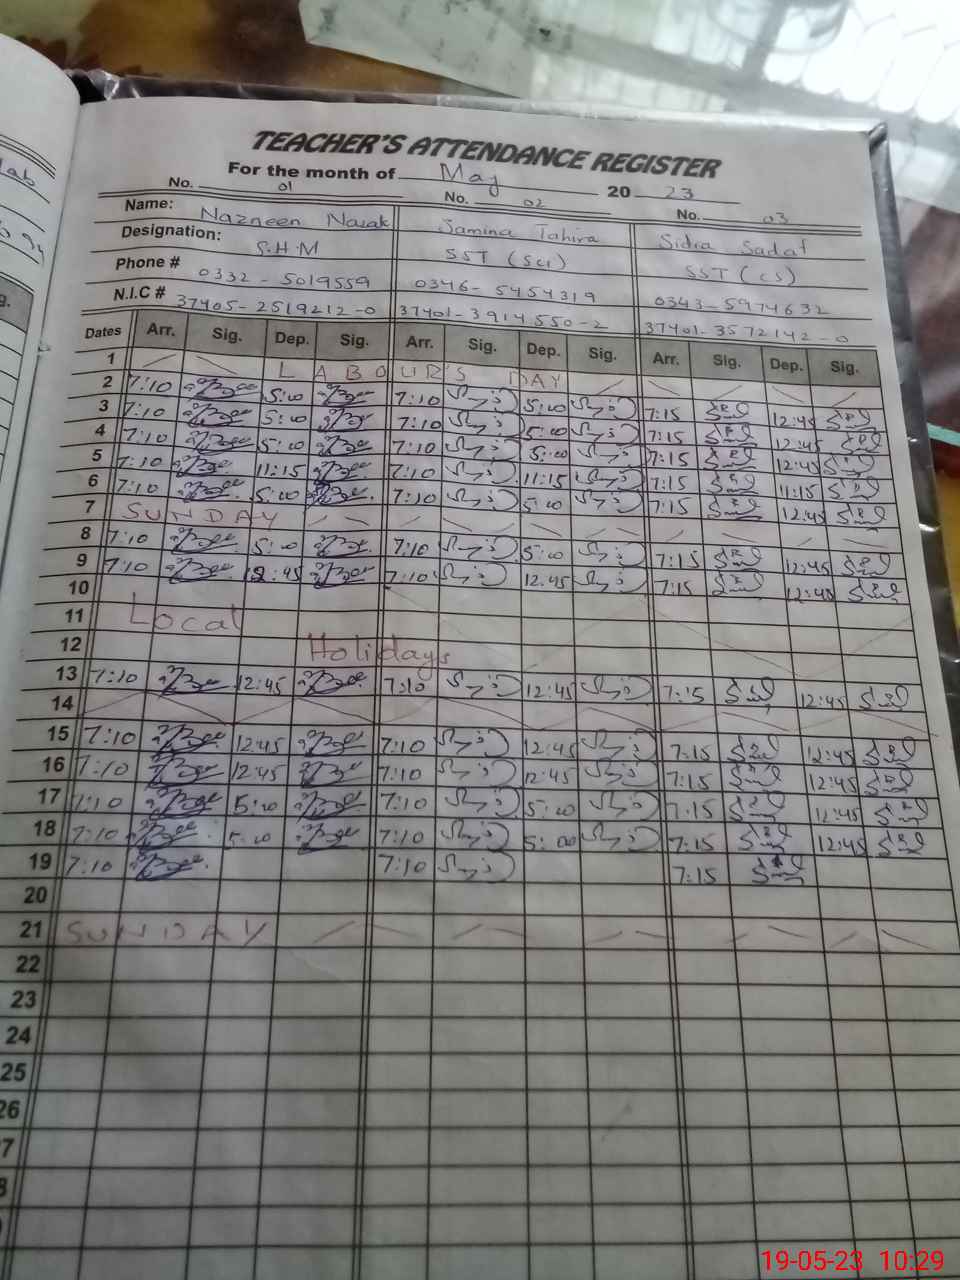 TEACHER'S ATTENDANCE REGISTER
For the month of May 20 23
No. 01 No. 02 No. 03
Name: Nazneen Samina Tahira Sidra Sadaf
Designation: S.H.M SST (Sci) SST (CS)
Phone # 0332-5019559 0346-5454319 0343-5974632
N.I.C # 37405-2519212-0 37401-3914550-2 37401-3572142-0
Dates Arr. Sig. Dep. Sig. Arr. Sig. Dep. Sig. Arr. Sig. Dep. Sig.
1 LABOUR'S DAY
2 7:10 5:00 7:10 5:00 7:15 12:45
3 7:10 5:00 7:10 5:00 7:15 12:45
4 7:10 5:00 7:10 5:00 7:15 12:45
5 7:10 11:15 7:10 11:15 7:15 11:15
6 7:10 5:00 7:10 5:00 7:15 12:45
7 SUNDAY
8 7:10 5:00 7:10 5:00 7:15 12:45
9 7:10 12:45 7:10 12:45 7:15 12:45
10
11 Local
12 Holidays
13 7:10 12:45 7:10 12:45 7:15 12:45
14
15 7:10 12:45 7:10 12:45 7:15 12:45
16 7:10 12:45 7:10 12:45 7:15 12:45
17 7:10 5:00 7:10 5:00 7:15 12:45
18 7:10 5:00 7:10 5:00 7:15 12:45
19 7:10 7:10 7:15
20
21 SUNDAY
22
23
24
25
26
7
8
19-05-23 10:29